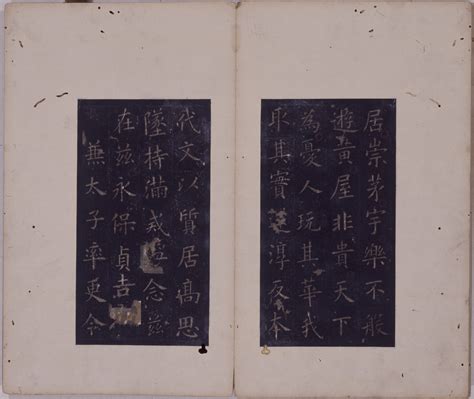 居崇茅宇樂不般
遊黄屋非貴天下
為憂人玩其華我
取其實還淳反本
代文以質居高思
墜持滿戒溢念兹
在兹永保貞吉
兼太子率更令